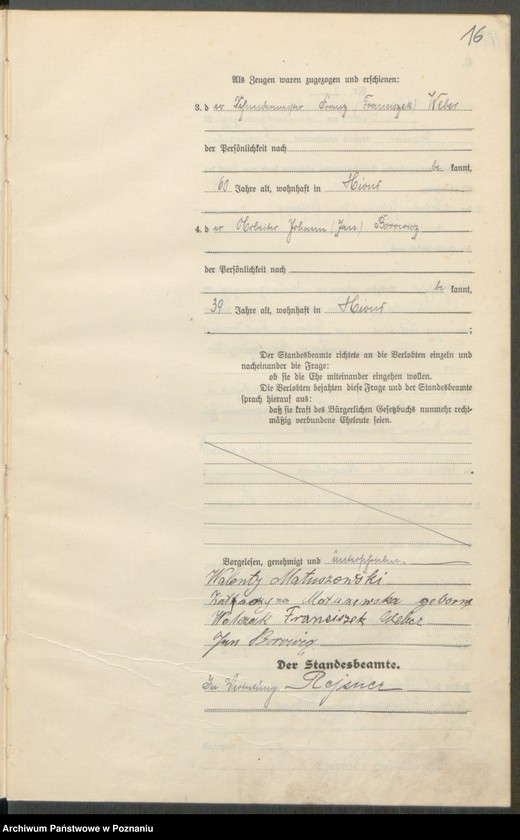 16
Als Zeugen waren zugezogen und erschienen:
3. d er Schuhmachermeister Franz (Franciszek) Weber
der Persönlichkeit nach
be kannt,
60 Jahre alt, wohnhaft in Xions
4. d er Arbeiter Johann (Jan) Borowicz
der Persönlichkeit nach
be kannt,
39 Jahre alt, wohnhaft in Xions
;
Der Standesbeamte richtete an die Verlobten einzeln und
nacheinander die Frage:
ob sie die Ehe miteinander eingehen wollen.
Die Verlobten bejahten diese Frage und der Standesbeamte
sprach hierauf aus:
daß sie kraft des Bürgerlichen Gesetzbuchs nunmehr recht-
mäßig verbundene Eheleute seien.
Vorgelesen, genehmigt und unterschrieben.
Walenty Matuszewski
geborne
Walczak Franciszek Weber
Jan
Der Standesbeamte.
In Vertretung
Archiwum Państwowe w Poznaniu